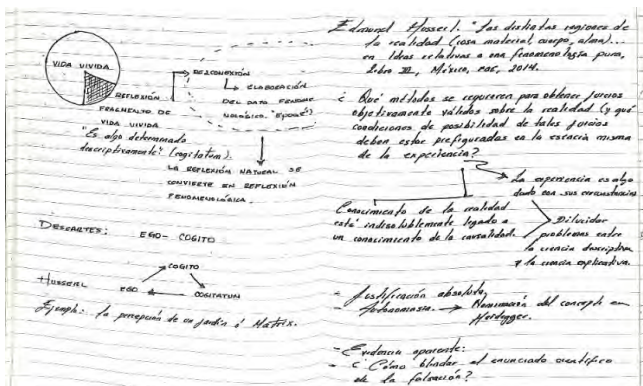 VIDA VIVIDA
REFLEXIÓN
FRAGMENTO DE
VIDA VIVIDA
"Es algo determinado
descriptivamente" (cogitatum).
DESCONEXIÓN
ELABORACIÓN
DEL DATO FENOME
NOLÓGICO. "EPOJÉ")
LA REFLEXIÓN NATURAL SE
CONVIERTE EN REFLEXIÓN
FENOMENOLÓGICA.
DESCARTES: EGO - COGITO
COGITO
HUSSERL EGO COGITATUM
Ejemplo: la percepción de un jardín ó Matrix.
Edmund Husserl. "Las distintas regiones de
la realidad (cosa material, cuerpo, alma)...
en Ideas relativas a una fenomenología pura,
Libro III, México, 2014.
¿Qué métodos se requieren para obtener juicios
objetivamente válidos sobre la realidad (y qué
condiciones de posibilidad de tales juicios
deben estar prefiguradas en la esencia misma
de la experiencia?
La experiencia es algo
dado con sus circunstancias
Conocimiento de la realidad
está indisolublemente ligado a
un conocimiento de la causalidad.
Dilucidar
problemas entre
la ciencia descriptiva
y la ciencia explicativa.
- Justificación absoluta,
- Autonomasia. Nominación del concepto en
Heidegger.
- Evidencia aparente:
- ¿Cómo blindar el enunciado científico
de la falsación?